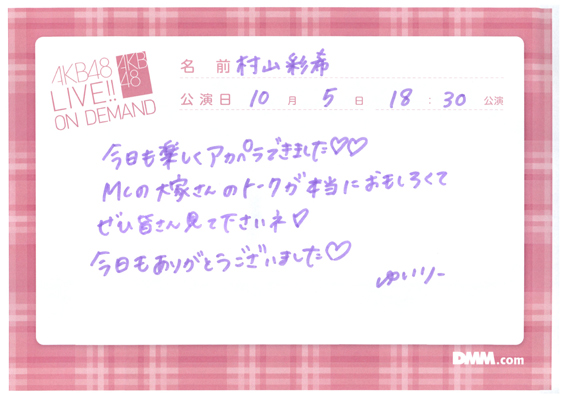 AKB48
LIVE!!
ON DEMAND
AKB
48
名 前 村山彩希
公演日 10 月 5 日 18 : 30 公演
今日も楽しくアカペラできました♡♡
MCの大家さんのトークが本当におもしろくて
ぜひ皆さん見て下さいネ♡
今日もありがとうございました♡
ゆいりー
DMM.com